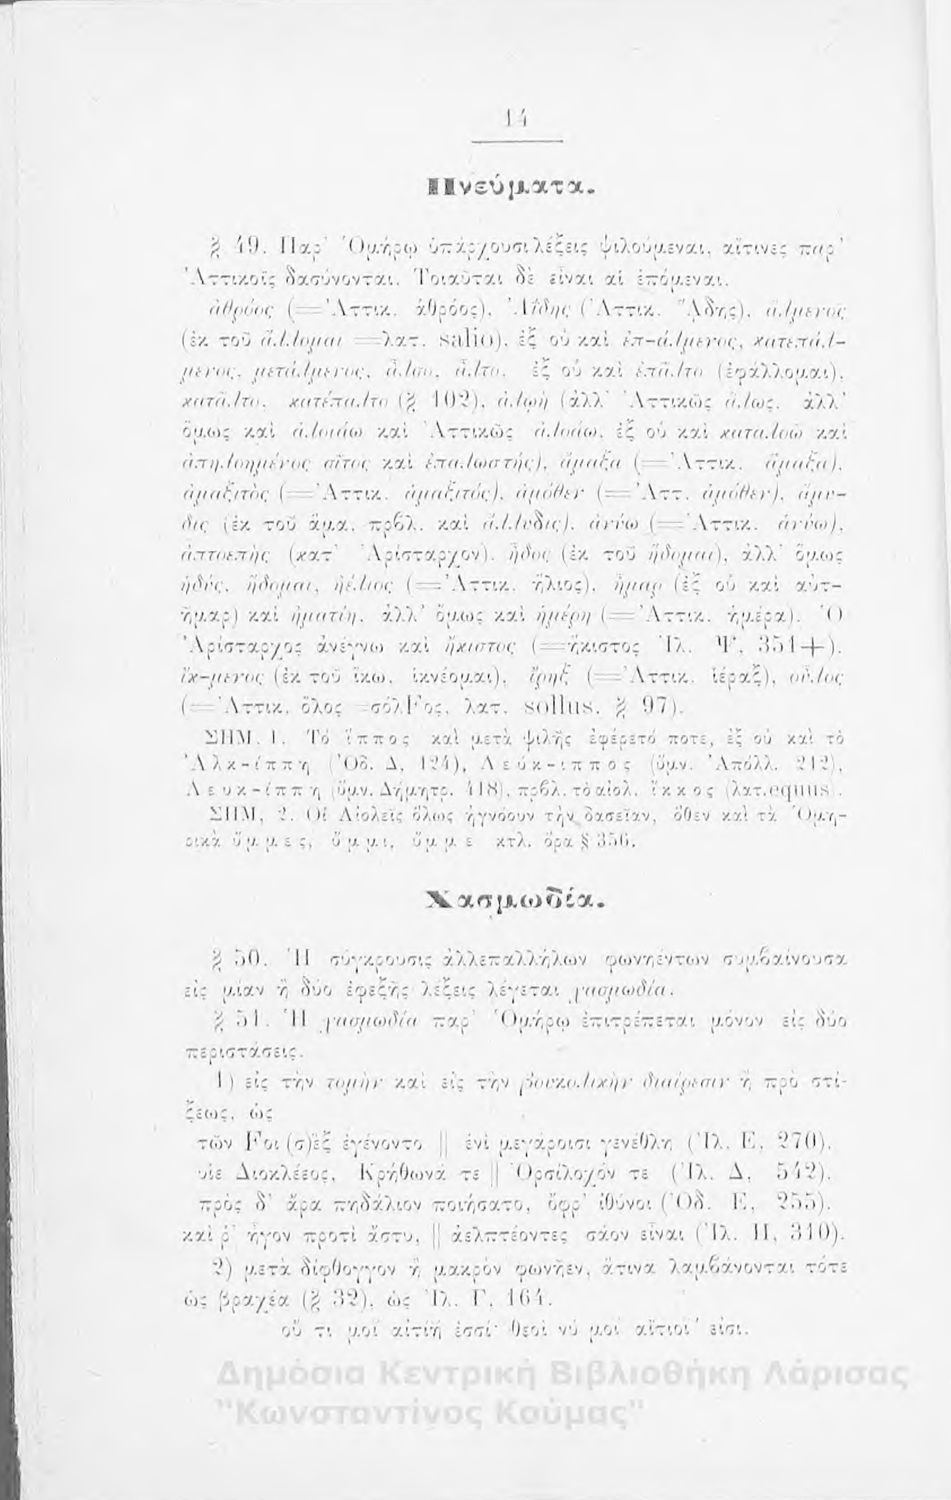 14
Πνεύματα.
§ 49. Παρ' Ὁμήρῳ ὑπάρχουσι λέξεις ψιλούμεναι, αἵτινες παρ'
Ἀττικοῖς δασύνονται. Τοιαῦται δὲ εἶναι αἱ ἑπόμεναι.
ἀθρόος (=Ἀττικ. ἁθρόος), Ἀΐδης (Ἀττικ. Ἅδης), ἄλμενος
(ἐκ τοῦ ἄλλομαι =λατ. salio), ἐξ οὗ καὶ ἐπ-άλμενος, κατεπάλ-
μενος, μετάλμενος, ἆλσο, ἆλτο, ἐξ οὗ καὶ ἐπᾶλτο (ἐφάλλομαι),
κατᾶλτο, κατέπαλτο (§ 102), ἀλωὴ (ἀλλ' Ἀττικῶς ἅλως, ἀλλ'
ὅμως καὶ ἀλοιάω καὶ Ἀττικῶς ἀλοάω, ἐξ οὗ καὶ καταλοῶ καὶ
ἀπηλοημένος σῖτος καὶ ἐπαλωστής), ἄμαξα (=Ἀττικ. ἅμαξα),
ἀμαξιτὸς (=Ἀττικ. ἁμαξιτός), ἀμόθεν (=Ἀττ. ἁμόθεν), ἄμυ-
δις (ἐκ τοῦ ἅμα, πρβλ. καὶ ἄλλυδις), ἀνύω (=Ἀττικ. ἁνύω),
ἀπτοεπὴς (κατ' Ἀρίσταρχον), ἦδος (ἐκ τοῦ ἥδομαι), ἀλλ' ὅμως
ἡδύς, ἥδομαι, ἠέλιος (=Ἀττικ. ἥλιος), ἦμαρ (ἐξ οὗ καὶ αὐτ-
ῆμαρ) καὶ ἠματίη, ἀλλ' ὅμως καὶ ἡμέρη (=Ἀττικ. ἡμέρα). Ὁ
Ἀρίσταρχος ἀνέγνω καὶ ἤκιστος (=ἥκιστος Ἰλ. Ψ, 351+),
ἴκ-μενος (ἐκ τοῦ ἵκω, ἱκνέομαι), ἴρηξ (=Ἀττικ. ἱέραξ), οὖλος
(=Ἀττικ. ὅλος =σόλFος, λατ. sollus, § 97).
ΣΗΜ. 1. Τὸ ἵππος καὶ μετὰ ψιλῆς ἐφέρετό ποτε, ἐξ οὗ καὶ τὸ
Ἀλκ-ίππη (Ὀδ. Δ, 124), Λεύκ-ιππος (ὕμν. Ἀπόλλ. 212),
Λευκ-ίππη (ὕμν. Δήμητρ. 418), πρβλ. τὸ αἰολ. ἴκκος (λατ. equus).
ΣΗΜ, 2. Οἱ Αἰολεῖς ὅλως ἠγνόουν τὴν δασεῖαν, ὅθεν καὶ τὰ Ὁμη-
ρικὰ ὔμμες, ὔμμι, ὔμμε κτλ. ὅρα § 356.
Χασμωδία.
§ 50. Ἡ σύγκρουσις ἀλλεπαλλήλων φωνηέντων συμβαίνουσα
εἰς μίαν ἢ δύο ἐφεξῆς λέξεις λέγεται χασμωδία.
§ 51. Ἡ χασμωδία παρ' Ὁμήρῳ ἐπιτρέπεται μόνον εἰς δύο
περιστάσεις.
1) εἰς τὴν τομὴν καὶ εἰς τὴν βουκολικὴν διαίρεσιν ἢ πρὸ στί-
ξεως, ὡς
τῶν Fοι (σ)ἓξ ἐγένοντο || ἐνὶ μεγάροισι γενέθλη (Ἰλ. Ε, 270),
υἷε Διοκλέεος, Κρήθωνά τε || Ὀρσίλοχόν τε (Ἰλ. Δ, 542),
πρὸς δ' ἄρα πηδάλιον ποιήσατο, ὄφρ' ἰθύνοι (Ὀδ. Ε, 255),
καὶ ῥ' ἦγον προτὶ ἄστυ, || ἀελπτέοντες σάον εἶναι (Ἰλ. Η, 310).
2) μετὰ δίφθογγον ἢ μακρὸν φωνῆεν, ἅτινα λαμβάνονται τότε
ὡς βραχέα (§ 32), ὡς Ἰλ. Γ, 164.
οὔ τι μοὶ αἰτίη ἐσσί· θεοὶ νύ μοι αἴτιοί εἰσι.
Δημόσια Κεντρική Βιβλιοθήκη Λάρισας
"Κωνσταντίνος Κούμας"